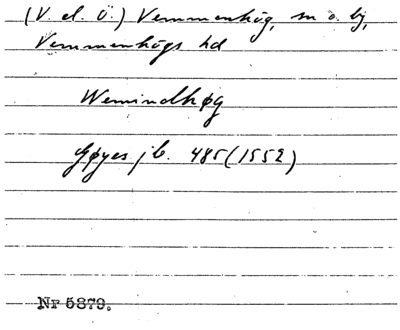 (V. el. Ö.) Vemmenhög, sn o. by,
Vemmenhögs hd
Wemindhøg
Gøyes jb. 485 (1552)
Nr 5879.